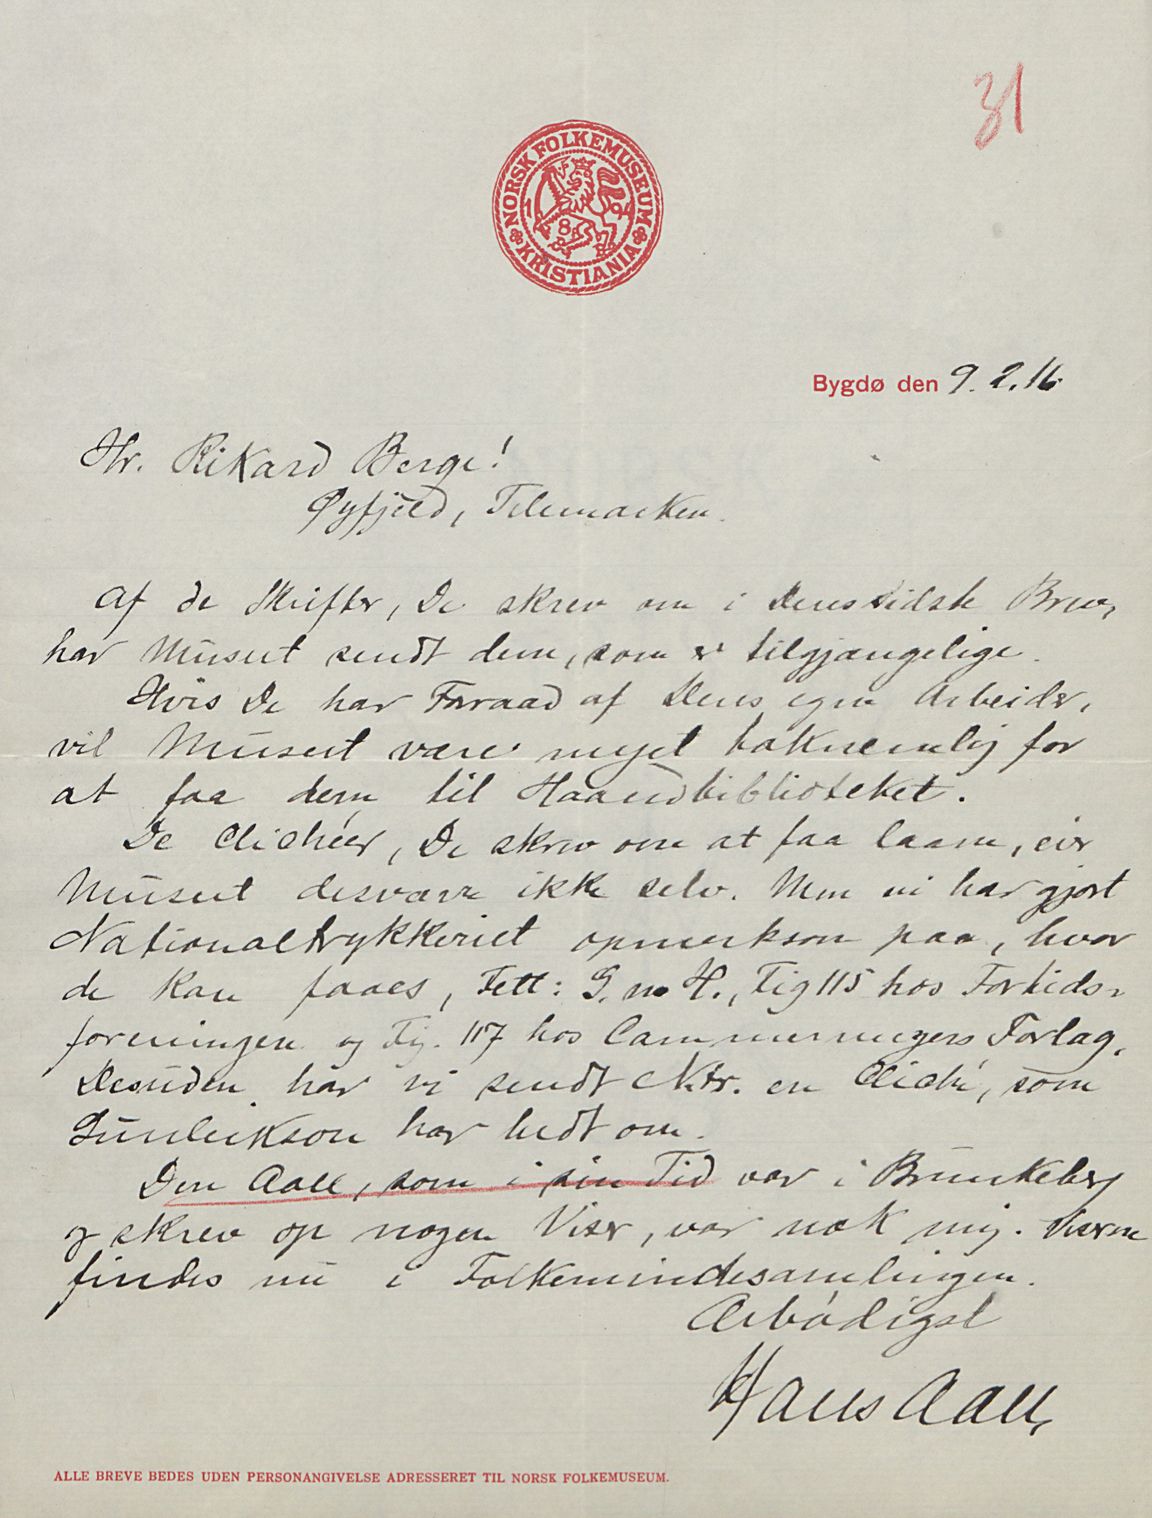 31
NORSK FOLKEMUSEUM
KRISTIANIA
1894
Bygdø den 9. 2. 16.
Hr. Rikard Berge!
Øyfjeld, Telemarken.
Af de Skrifter, De skrev om i Deres sidste Brev,
har Museet sendt dem, som er tilgjængelige.
Hvis De har Forraad af Deres egne Arbeider,
vil Museet være meget taknemlig for
at faa dem til Haandbiblioteket.
De Clichéer, De skrev om at faa laane, eier
Museet desværre ikke selv. Men vi har gjort
Nationaltrykkeriet opmerksom paa, hvor
de kan faaes, Fett: G. n. H., Fig 115 hos Fortids-
foreningen og Fig. 117 hos Cammermeyers Forlag.
Desuden har vi sendt Ntr. en Cliché, som
Gunleikson har bedt om.
Den Aall, som i sin Tid var i Brunkeberg
og skrev op nogen Viser, var nok mig. Viserne
findes nu i Folkemindesamlingen.
Ærbødigst
Hans Aall,
ALLE BREVE BEDES UDEN PERSONANGIVELSE ADRESSERET TIL NORSK FOLKEMUSEUM.